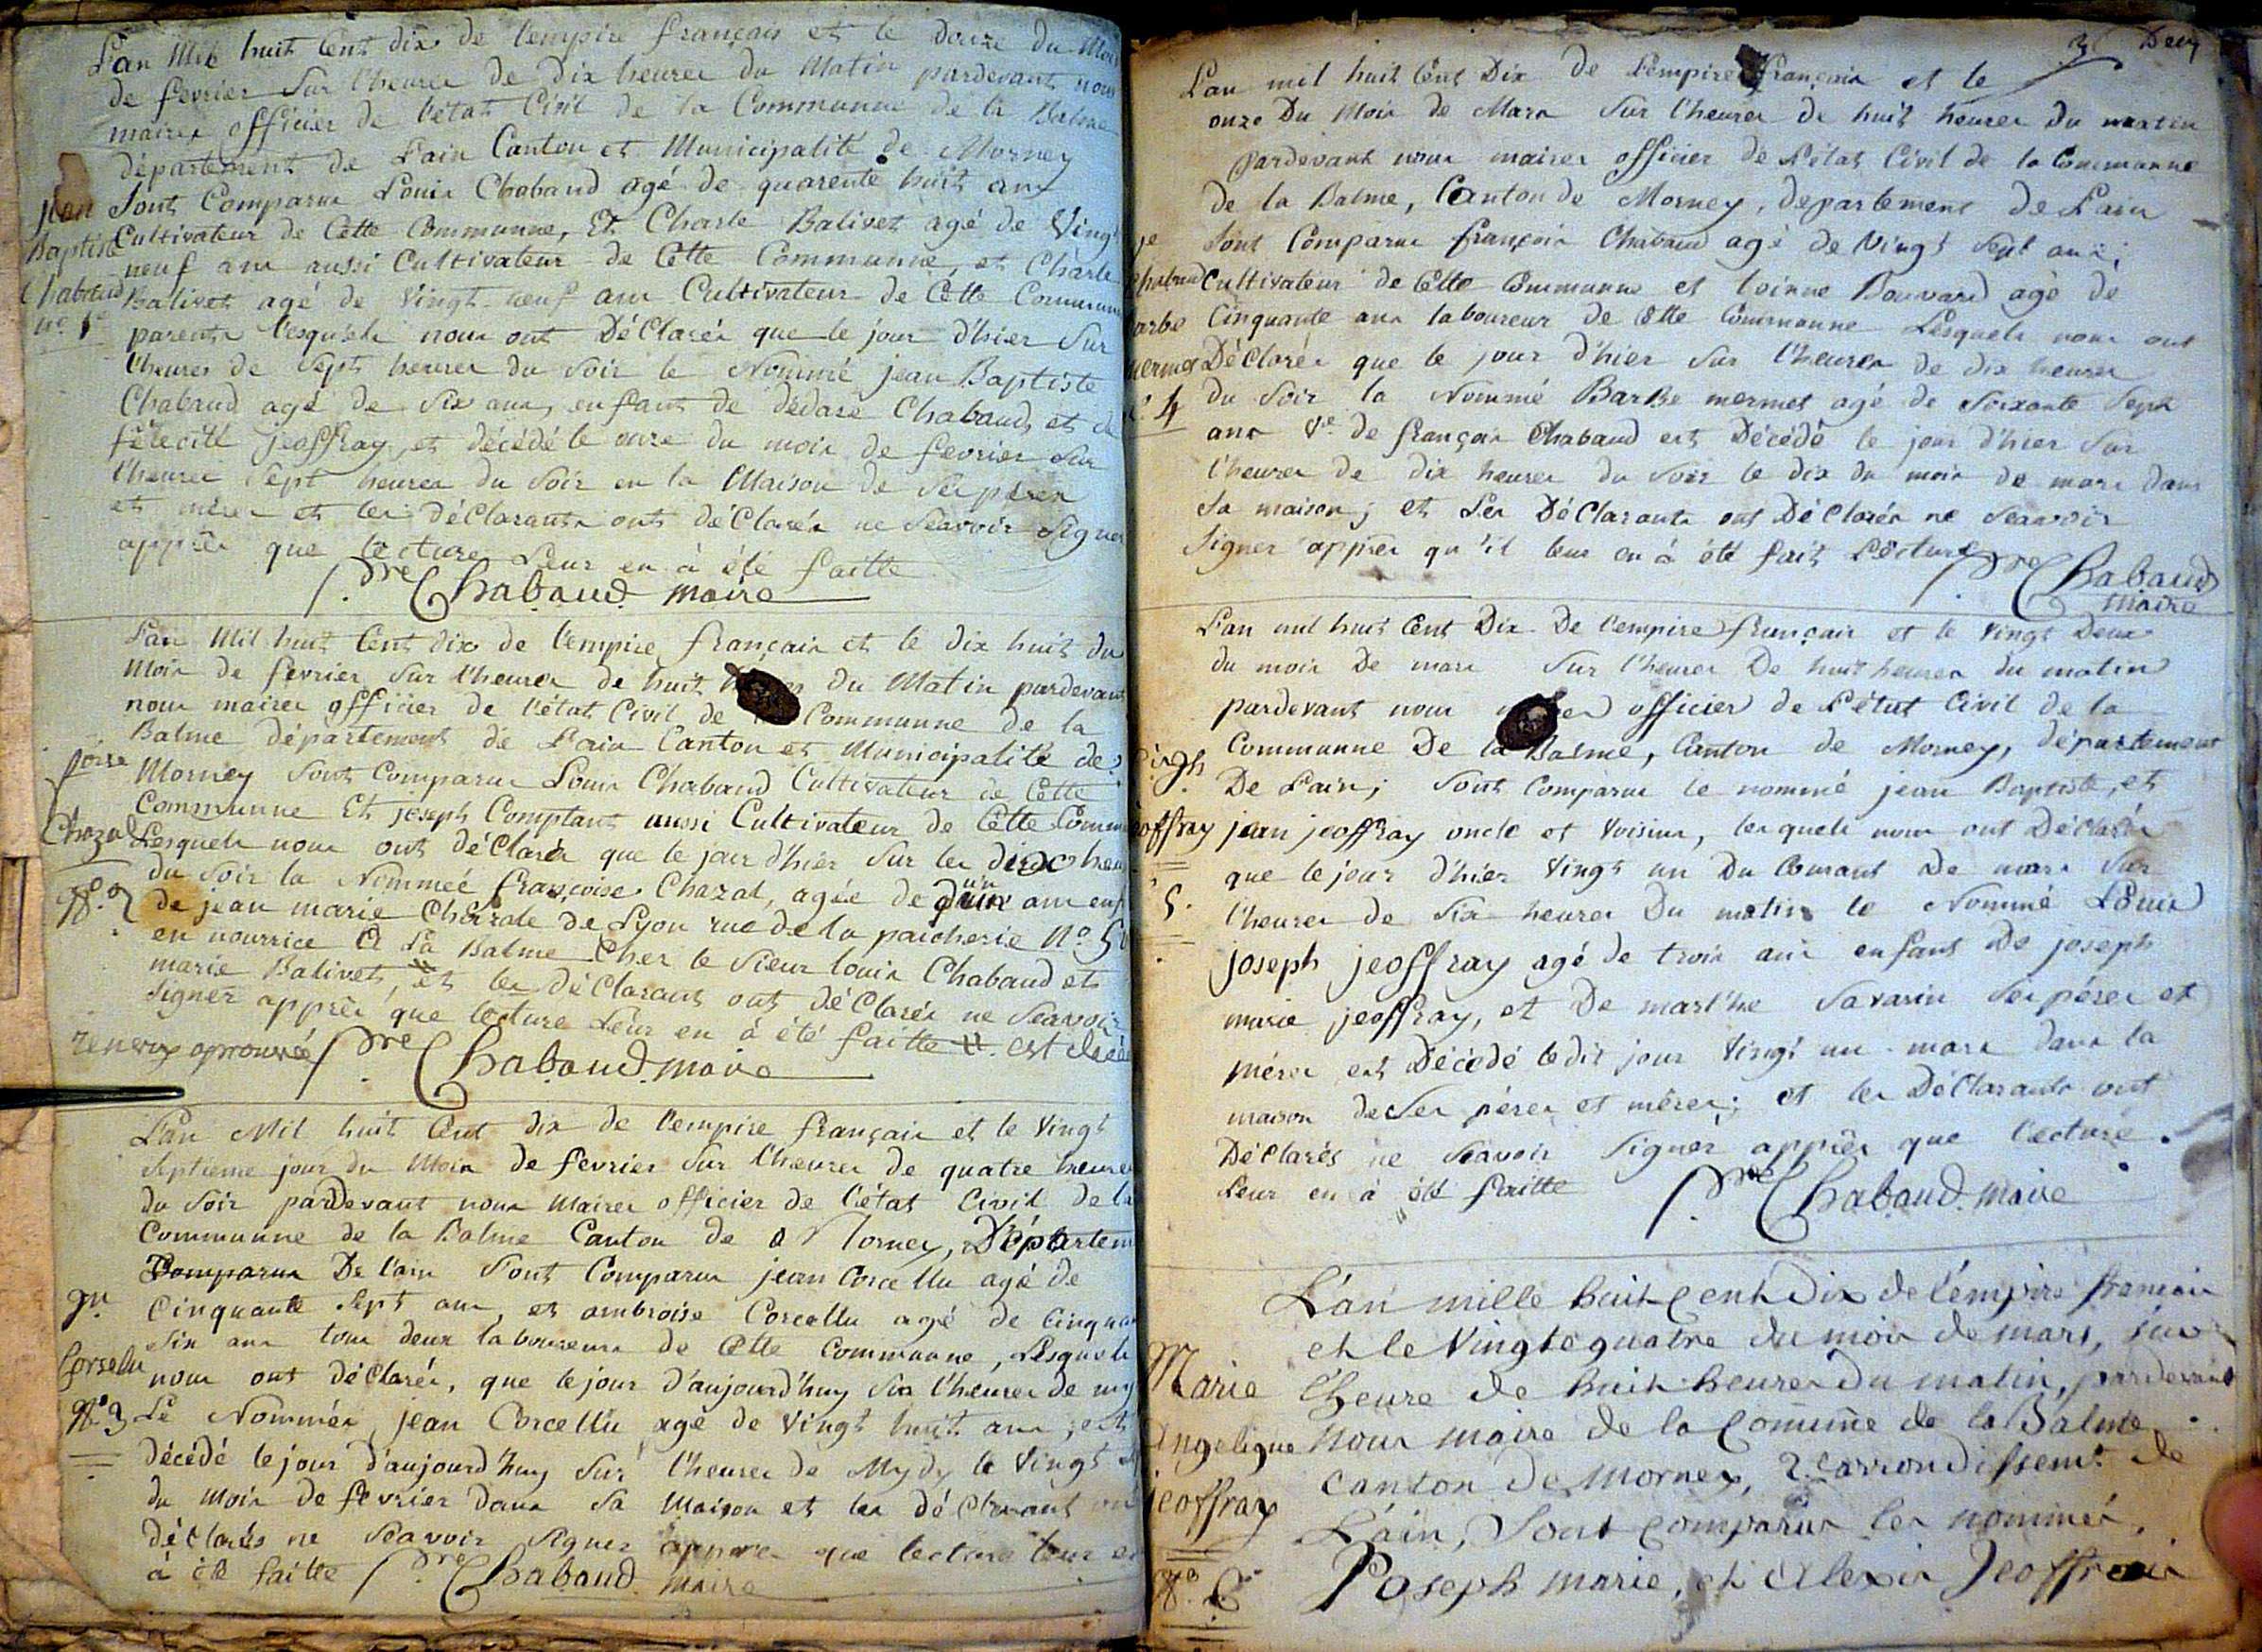 L'an Mil huit Cent dix de l'empire français et le douze du Mois
de fevrier Sur l'heures de dix heures du Matin pardevant nous
maires officier de l'état Civil de la Commune de la Balme
département de Lain Canton et Municipalité de Morney
Sont Comparus Louis Chabaud agé de quarente huit ans
Cultivateur de Cette Commune, Et Charle Balivet agé de Vingt
neuf ans aussi Cultivateur de Cette Commune, et Charle
Balivet agé de Vingt neuf ans Cultivateur de Cette Commune
parents lesquels nous ont Déclarés que le jour d'hier Sur
l'heures de Sept heures du Soir le Nommé jean Baptiste
Chabaud agé de Six ans, enfant de Chabaud, et de
jeoffray, et décédé le onze du mois de fevrier Sur
l'heures Sept heures du Soir en la Maison de Ses péres
et méres et les déClarants ont déClarés ne Scavoir Signer
apprês que lecture Leur en à été faitte
Chabaud maire
jean
Baptiste
Chabaud
n.º 1er
L'an Mil huit Cent dix de l'empire français et le dix huit du
Mois de fevrier Sur l'heures de huit du Matin pardevant
nous maires officier de l'état Civil de Commune de la
Balme département de Lain Canton et Municipalité de
Morney Sont Comparus Louis Chabaud Cultivateur de Cette
Commune Et joseph Comptant aussi Cultivateur de Cette
Lesquels nous ont déClarés que le jour d'hier Sur les
du Soir la Nommée françoise Chazal, agée de ans
de jean marie de Lyon rue de la paicherie Nº
en nourrice à La Balme Cher le Sieur louis Chabaud et
marie Balivet, # et les déClarant ont déClarés ne Scavoir
Signer apprês que lecture Leur en à été faitte #. est
Chabaud maire
Chazal
Nº. 2
L'an Mil huit Cent dix de l'empire français et le Vingt
Septieme jour du Mois de fevrier Sur l'heures de quatre heures
du Soir pardevant nous Maires officier de l'état Civil de la
Commune de la Balme Canton de Morney, Départem
Comparus De l'ain Sont Comparus jean Corcellu agé de
Cinquante Sept ans, et ambroise Corcellu agé de
Six ans tous deux laboureurs de Cette Commune, Lesquels
nous ont déClarés, que le jour d'aujourd'huy Sur l'heures de
Le Nommés jean Corcellu agé de Vingt huit ans; est
décédé le jour d'aujourd'huy Sur l'heures de Mydy le Vingt
du Mois de fevrier Dans Sa Maison et les déClarant
déClarés ne Scavoir Signer apprês que lecture leur
à été faitte Chabaud maire
jn.
Corselu
Nº 3
L'an mil huit Cent Dix De L'empire français et le
onze Du Mois de Mars Sur l'heures de huit heures Du matin
Pardevant nous maires officier de L'état Civil de la Commune
de la Balme, Canton de Morney, departement De Lain
Sont Comparus françois Chabaud agé de Vingt Sept ans;
Cultivateur de Cette Commune et Bouvard agé de
Cinquante ans laboureur de Cette Commune Lesquels nous ont
Déclarés que le jour d'hier Sur l'heures de dix heures
du Soir la Nommé Barbe mermet agé de Soixante Sept
ans Ve de françois Chabaud est Décédé le jour d'hier Sur
l'heures de dix heures du Soir le dix du mois de mars dans
Sa maison; et Les DéClarants ont DéClarés ne Scavoir
Signer apprês qu'il leur en à été fait Lecture
Chabaud
maire
L'an mil huit Cent Dix De l'empire français et le Vingt Deux
du mois De mars Sur l'heures De huit heures du matin
pardevant nous officier de L'état Civil de la
Commune De la Balme, Canton de Morney, département
De Lain; Sont Comparus le nommé jean Baptiste, et
jean jeoffray oncle et Voisin, lesquels nous ont Déclarés
que le jour d'hier Vingt un Du Courant De mars Sur
l'heures de Six heures Du matin le Nommé Louis
joseph jeoffray agé de trois ans enfant De joseph
marie jeoffray, et De marthe Savarin Ses péres et
méres est Décédé ledit jour Vingt un mars Dans la
maison de Ses péres et méres; et les DéClarants ont
DéClarés ne Scavoir Signer apprês que lecture
Leur en à été faitte Chabaud maire
L'an mille huit Cent Dix de l'empire francais
et le Vingt quatre du mois de mars, sur
l'heure de huit heures Du matin, pardevant
nous maire de la Comune de la Balme
canton de Morney, arrondissemt. de
L'ain, Sont comparus les nommés
Joseph marie, et Alexis Jeoffrai
Marie
Angelique
jeoffray
Nº. 6